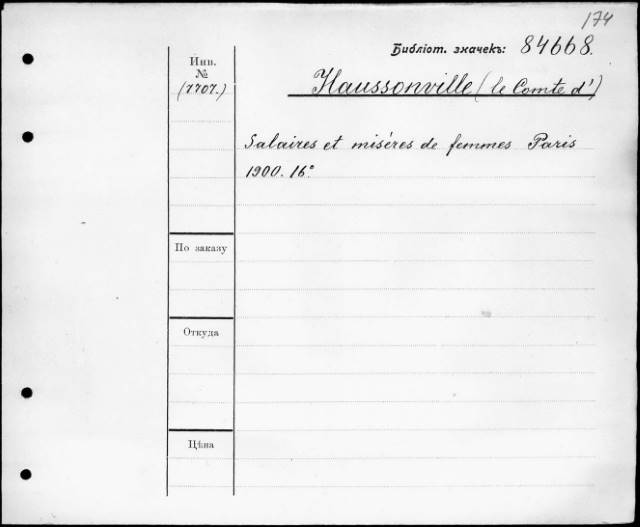 174
Библіот. значекъ: 84668.
Инв.
№
(7707.)
Haussonville (le Comte d')
Salaires et miséres de femmes Paris
1900. 16°
По заказу
Откуда
Цѣна